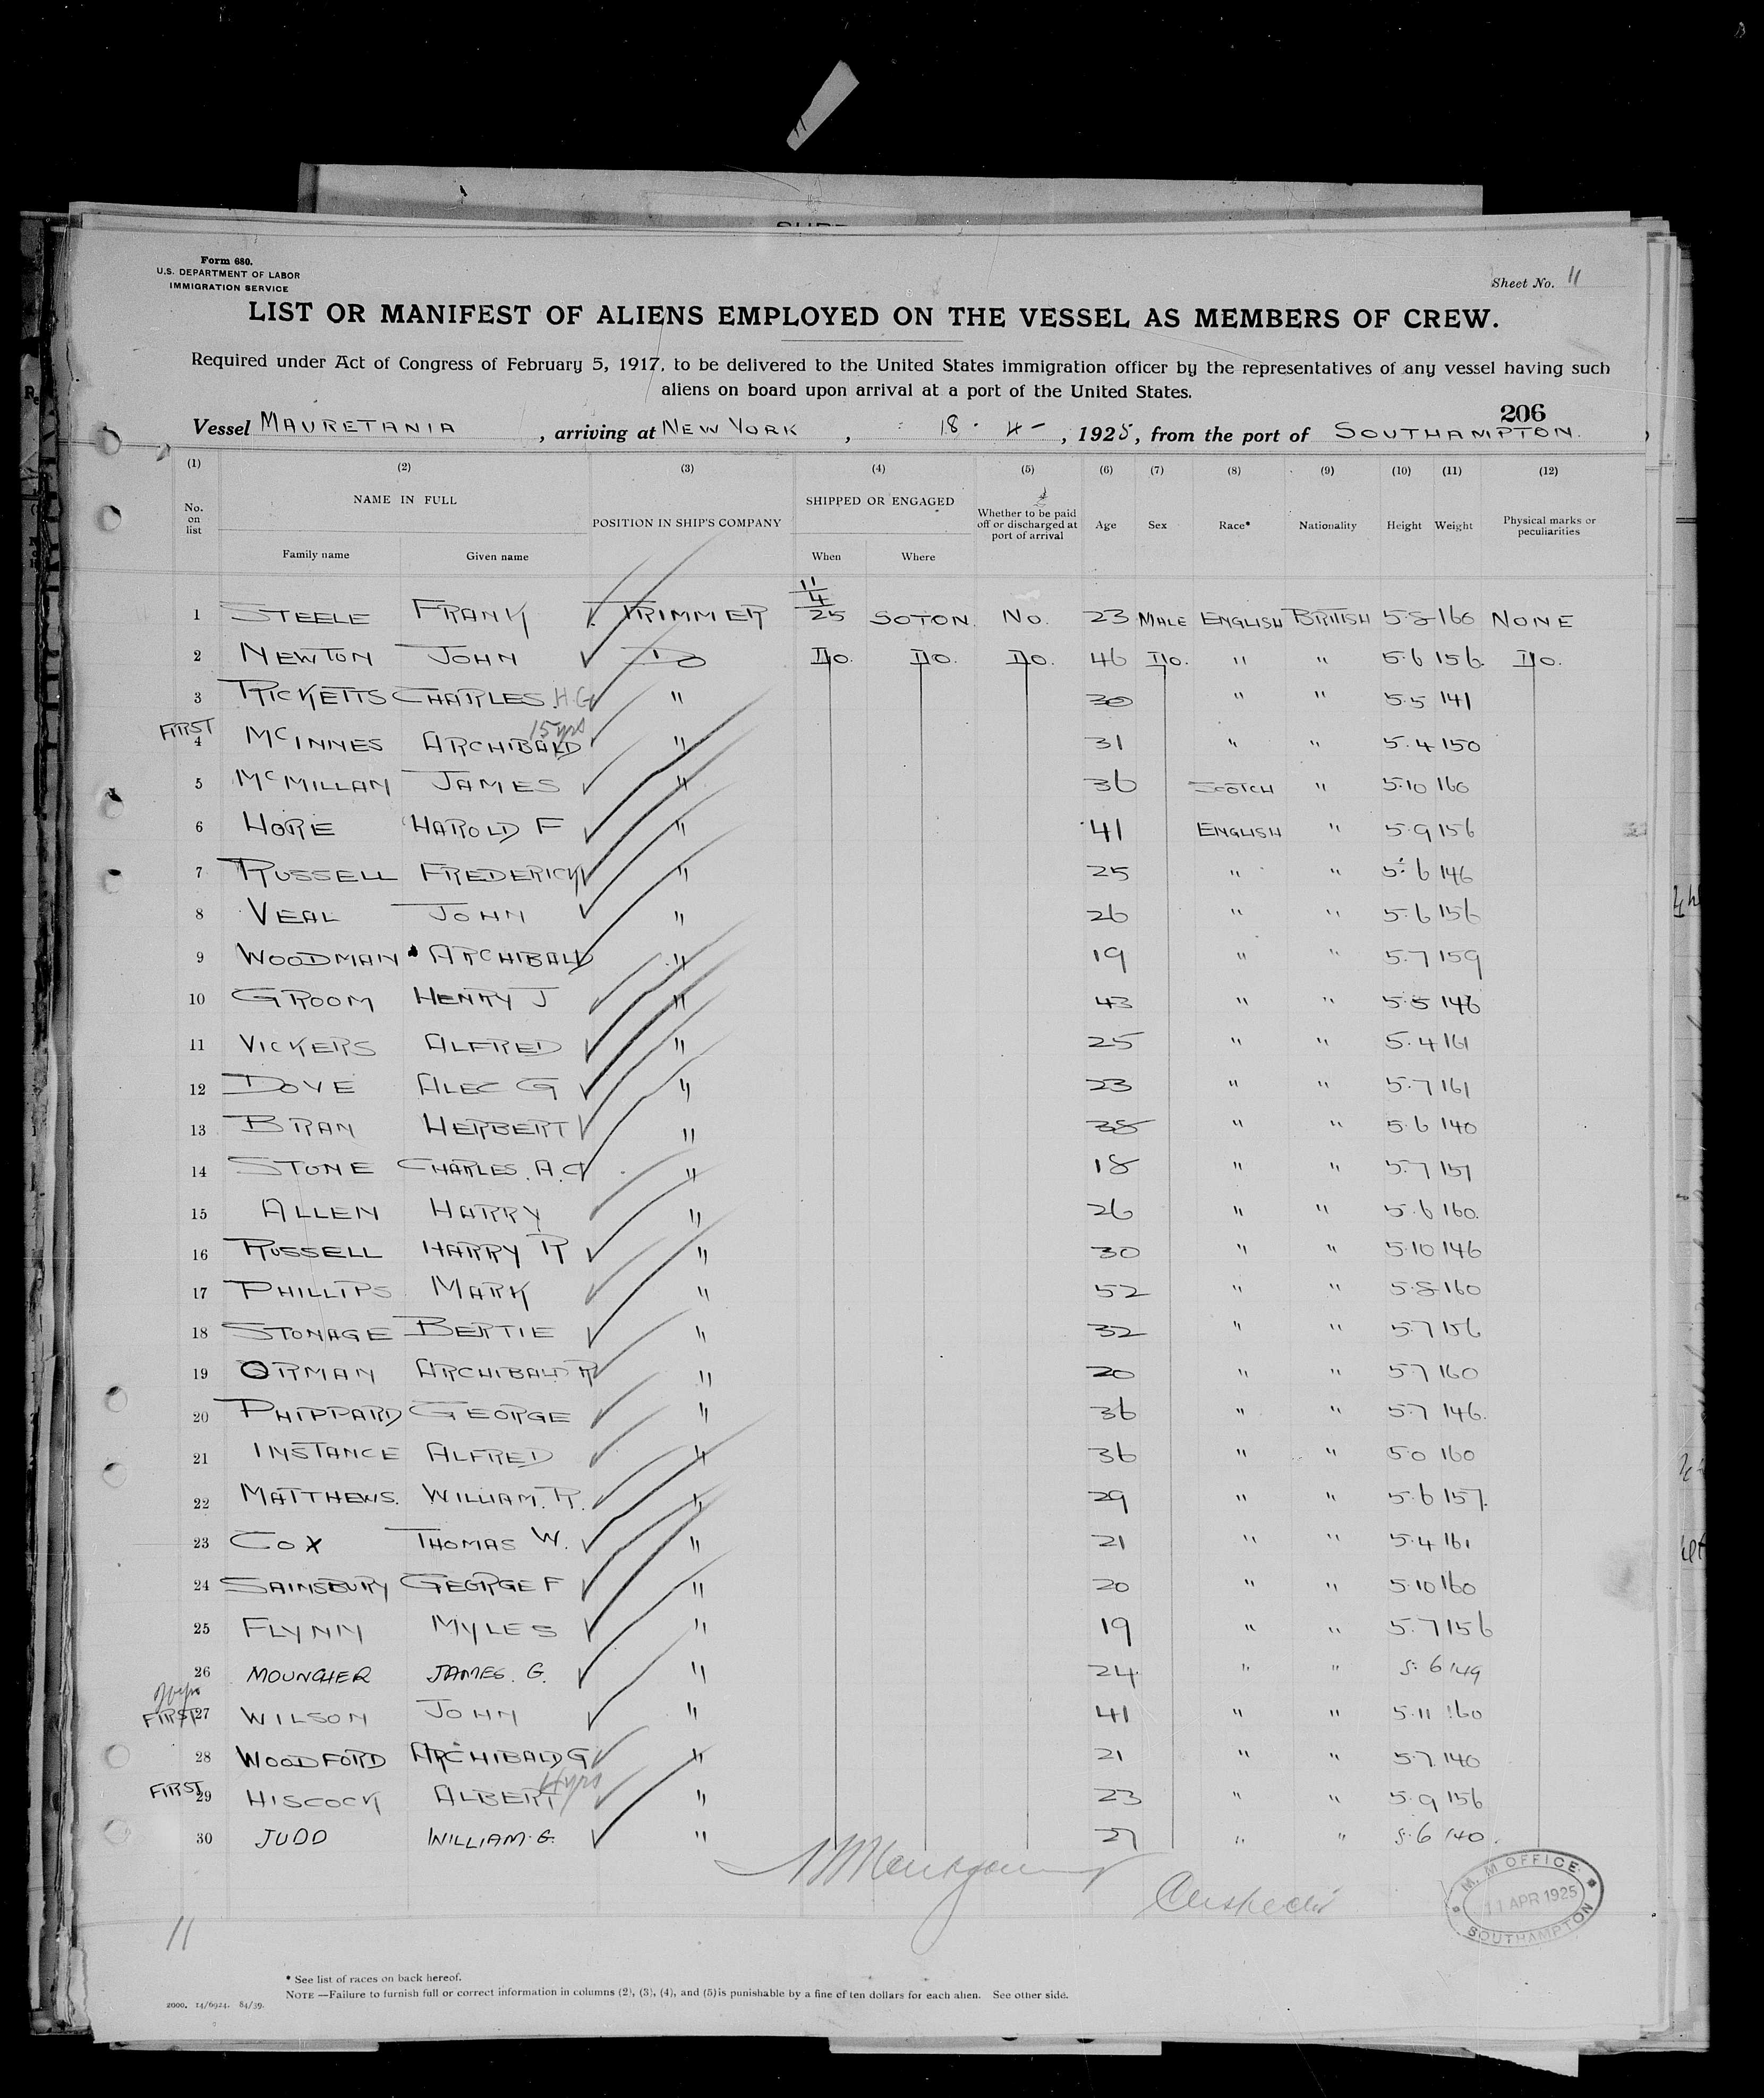 Form 680.
U.S. DEPARTMENT OF LABOR
IMMIGRATION SERVICE
Sheet No. 11
LIST OR MANIFEST OF ALIENS EMPLOYED ON THE VESSEL AS MEMBERS OF CREW.
Required under Act of Congress of February 5, 1917, to be delivered to the United States immigration officer by the representatives of any vessel having such
aliens on board upon arrival at a port of the United States.
206
Vessel MAURETANIA, arriving at NEW YORK, 18 - 4 -, 1925, from the port of SOUTHAMPTON.
(1) (2) (3) (4) (5) (6) (7) (8) (9) (10) (11) (12)
No. on list NAME IN FULL Family name Given name POSITION IN SHIP'S COMPANY SHIPPED OR ENGAGED When Where Whether to be paid off or discharged at port of arrival Age Sex Race* Nationality Height Weight Physical marks or peculiarities
1 STEELE FRANK TRIMMER 11/4/25 SOTON. No. 23 MALE ENGLISH BRITISH 5.8 160 NONE
2 NEWTON JOHN DO DO. DO. DO. 46 DO. " " 5.6 156. DO.
3 RICKETTS CHARLES.H.G " 30 " " 5.5 141
FIRST 15 yrs
4 McINNES ARCHIBALD " 31 " " 5.4 150
5 McMILLAN JAMES " 36 SCOTCH " 5.10 160
6 HORE HAROLD F " 41 ENGLISH " 5.9 156
7 RUSSELL FREDERICK " 25 " " 5.6 146
8 VEAL JOHN " 26 " " 5.6 156
9 WOODMAN ARCHIBALD " 19 " " 5.7 159
10 GROOM HENRY J " 43 " " 5.5 146
11 VICKERS ALFRED " 25 " " 5.4 161
12 DOVE ALEC G " 23 " " 5.7 161
13 BRAN HERBERT " 38 " " 5.6 140
14 STONE CHARLES.A.C " 18 " " 5.7 151
15 ALLEN HARRY " 26 " " 5.6 160.
16 RUSSELL HARRY R " 30 " " 5.10 146
17 PHILLIPS MARK " 52 " " 5.8 160
18 STONAGE BERTIE " 32 " " 5.7 156
19 ORMAN ARCHIBALD R " 20 " " 5.7 160
20 PHIPPARD GEORGE " 36 " " 5.7 146.
21 INSTANCE ALFRED " 36 " " 5.0 160
22 MATTHEWS. WILLIAM.R. " 29 " " 5.6 157.
23 COX THOMAS W. " 21 " " 5.4 161
24 SAINSBURY GEORGE F " 20 " " 5.10 160
25 FLYNN MYLES " 19 " " 5.7 156
26 MOUNCHER JAMES. G. " 24 " " 5.6 149
FIRST
27 WILSON JOHN " 41 " " 5.11 160
28 WOODFORD ARCHIBALD G " 21 " " 5.7 140
FIRST 4 yrs
29 HISCOCK ALBERT " 23 " " 5.9 156
30 JUDD WILLIAM.G. " 27 " " 5.6 140.
M. M OFFICE
11 APR 1925
SOUTHAMPTON
11
* See list of races on back hereof.
NOTE —Failure to furnish full or correct information in columns (2), (3), (4), and (5) is punishable by a fine of ten dollars for each alien. See other side.
2000. 14/6924. 84/39.